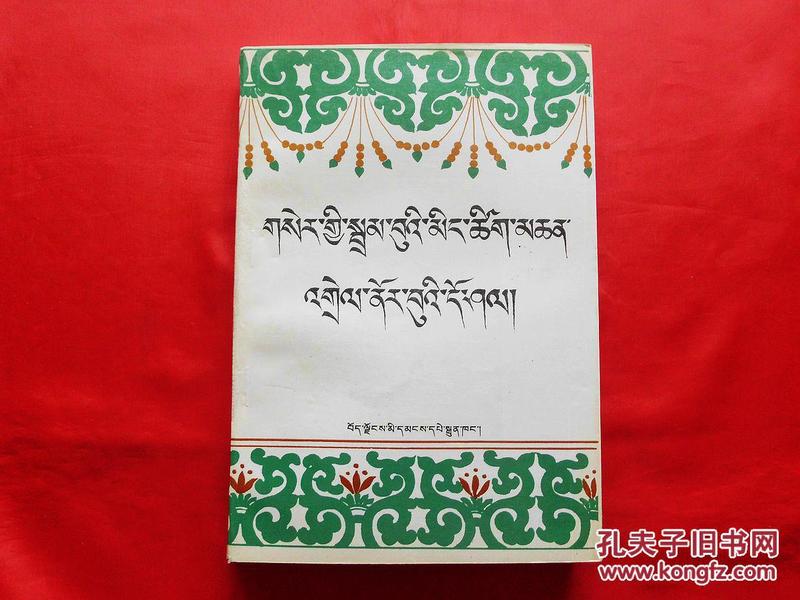 གསེར་གྱི་སྦྲམ་བུའི་མིང་ཚིག་མཆན་
འགྲེལ་ནོར་བུའི་དོ་ཤལ།
བོད་ལྗོངས་མི་དམངས་དཔེ་སྐྲུན་ཁང་།
孔夫子旧书网
www.kongfz.com